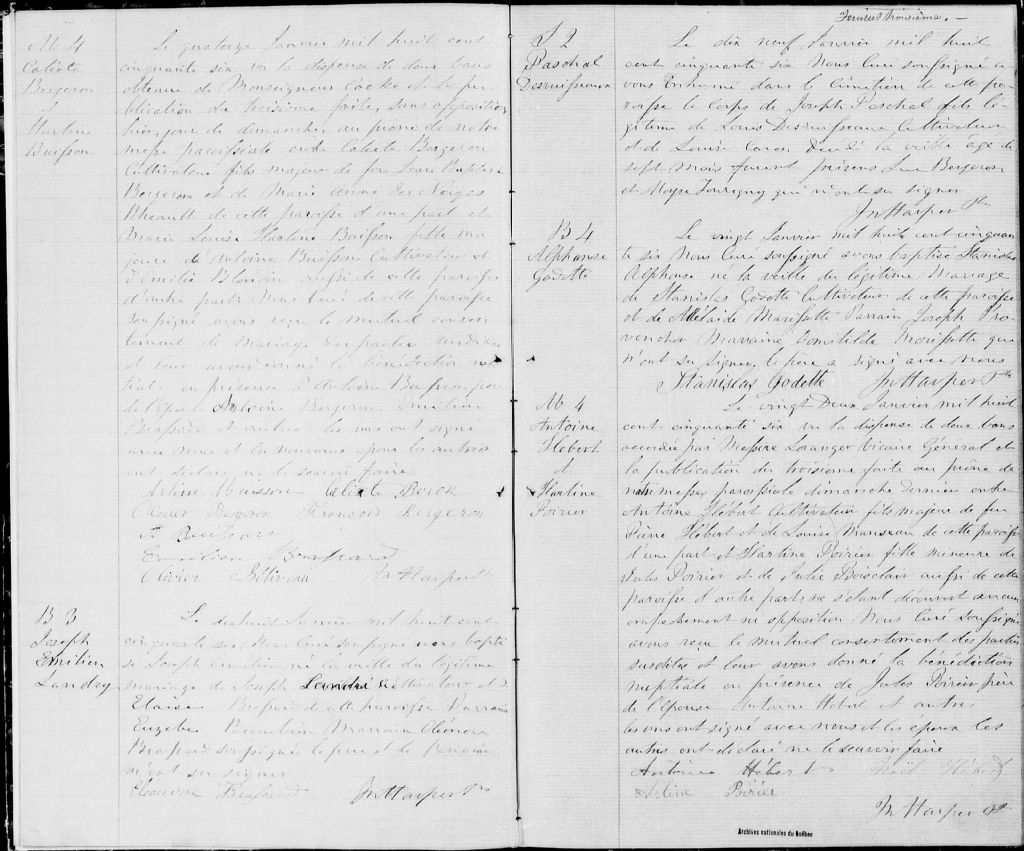 M 4
Calixte
Bergeron
et
Martine
Buisson
Le quatorze Janvier mil huit cent
cinquante six vu la dispense de deux bans
obtenue de Monseigneur Cooke et la pu
blication du troisième faite, sans opposition
hier, jour de dimanche, au prone de notre
messe paroissiale entre Calixte Bergeron
Cultivateur fils majeur de feu Jean Baptiste
Bergeron et de Marie Anne des Neiges
Rheault de cette paroisse d'une part et
Marie Louise Martine Buisson fille ma
jeure de Antoine Buisson Cultivateur et
d'Emilie Blondin aussi de cette paroisse
d'autre part. Nous Curé de cette paroisse
soussigné avons reçu le mutuel consen
tement de Mariage des parties susdites
et leur avons donné la bénédiction nup
tiale en présence d'Antoine Buisson père
de l'épouse Antoine Bergeron, Emilien
Brassard et autres, les uns ont signé
avec nous et les nouveaux époux les autres
ont déclaré ne le savoir faire
Calixte
Olivier Bergeron François Bergeron
Emilien Brassard
Olivier Béliveau Jn Harper Ptre
B 3
Joseph
Emilien
Landry
Le dixhuit Janvier mil huit cent
cinquante six, Nous Curé soussigné avons bapti
sé Joseph Emilien né la veille du légitime
mariage de Joseph Landri Cultivateur et d
Eloise Brassard de cette paroisse Parrain
Euzebe Beaulieu Marraine Eléonore
Brassard soussigné le père et le Parrain
n'ont su signer
Eléonore Brassard Jn Harper Ptre
Feuillet troisième. —
S 2
Paschal
Desruisseaux
Le dix neuf Janvier mil huit
cent cinquante six Nous Curé soussigné a
vons Enhumé dans le Cimetière de cette pa
roisse le Corps de Joseph Paschal fils lé
gitime de Louis Desruisseaux Cultivateur
et de Louise Caron décédé la veille âgé de
sept mois furent présens Luc Bergeron
et Moyse Tourigny qui n'ont su signer
Jn Harper Ptre
B 4
Alphonse
Godette
Le vingt Janvier mil huit cent cinquan
te six Nous Curé soussigné avons baptisé Stanislas
Alphonse né la veille du légitime Mariage
de Stanislas Godette Cultivateur de cette paroisse
et de Adélaide Morissette Parrain Joseph Pro
vencher Marraine Domitilde Morissette qui
n'ont su signer, le père a signé avec nous
Stanislas Godette Jn Harper Ptre
M 4
Antoine
Hebert
et
Martine
Poirier
Le vingt Deux Janvier mil huit
cent cinquante six vu la dispense de deux bans
accordée par Messire Loranger Vicaire Général et
la publication du troisième faite au prône de
notre messe paroissiale dimanche dernier entre
Antoine Hébert Cultivateur fils majeur de feu
Pierre Hébert et de Louise Manseau de cette paroisse
d'une part et Martine Poirier fille mineure de
Jules Poirier et de Julie Boisclair aussi de cette
paroisse d'autre part, ne s'étant découvert aucun
empêchement ni opposition Nous Curé Soussigné
avons reçu le mutuel consentement des parties
susdites et leur avons donné la bénédiction
nuptiale en présence de Jules Poirier, père
de l'épouse Antoine Hébert et autres
les uns ont signé avec nous et les époux les
autres ont déclaré ne le savoir faire
Antoine Hébert Noël Hébert
Poirier
Jn Harper Ptre
Archives nationales du Québec